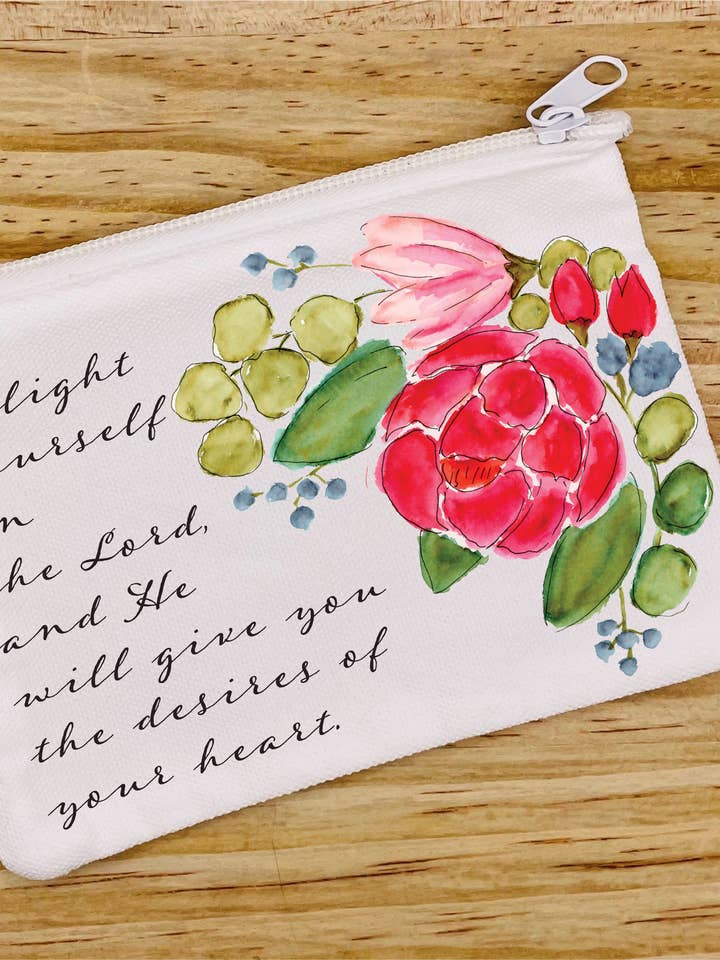 light
urself
n
he Lord,
and He
will give you
the desires of
your heart.